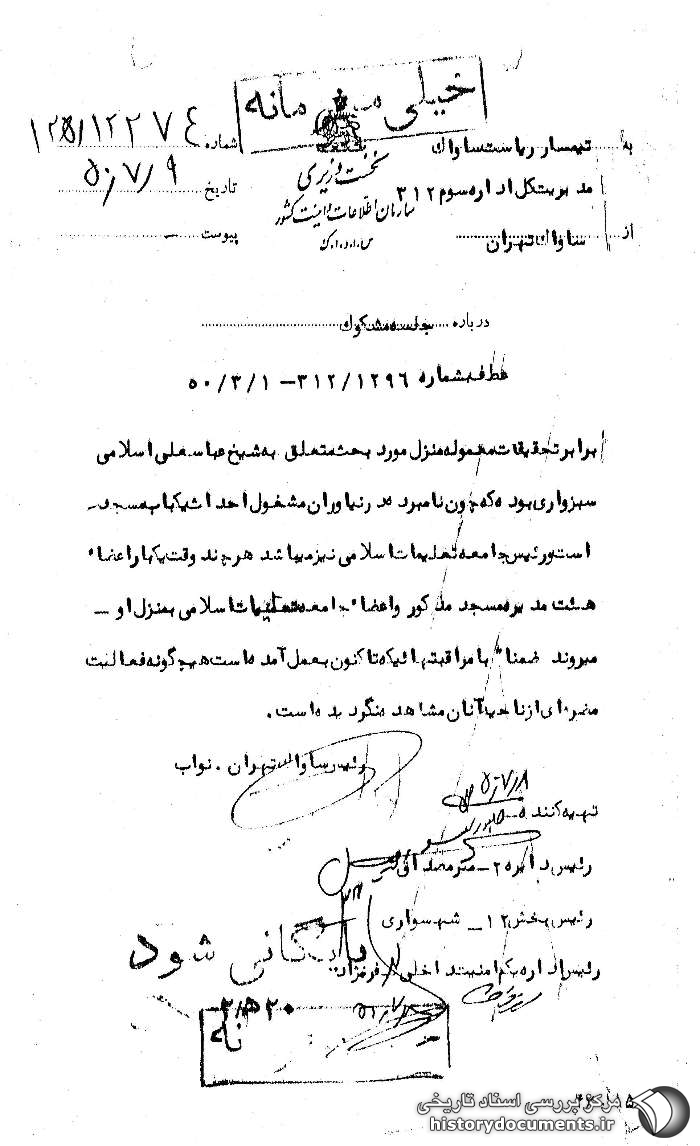 خیلی محرمانه
به تیمسار ریاست ساواك
مدیریت کل اداره سوم ۳۱۲
از ساواك تهران
نخست وزیری
سازمان اطلاعات و امنیت کشور
س.ا.و.ا.ك
شماره ۱۲۲۷٤/۱۲ﻫ
تاریخ ۵۰/۷/۹
پیوست -
درباره جلسه مشکوك
عطف بشماره ۳۱۲/۱۲۹۶ - ۵۰/۳/۱
برابر تحقیقات معموله منزل مورد بحث متعلق به شیخ عباسعلی اسلامی
سبزواری بوده که چون نامبرده در نیاوران مشغول احداث یکباب مسجد
است و رئیس جامعه تعلیمات اسلامی نیز میباشد هرچند وقت یکبار اعضاء
هیئت مدیره مسجد مذکور و اعضاء جامعه تعلیمات اسلامی بمنزل او -
میروند ضمنا" با مراقبتهائیکه تاکنون بعمل آمده است هیچگونه فعالیت
مضره ای از ناحیه آنان مشاهده نگردیده است .
رئیس ساواك تهران . نواب
۵۰/۷/۸
تهیه کننده
رئیس دایره ۲ -
رئیس بخش ۱۲ _ شهسواری
رئیس اداره یکم امنیت داخلی - فرنژاد
بایگانی شود
۲۰ﻫ۲
مرکز بررسی اسناد تاریخی
historydocuments.ir